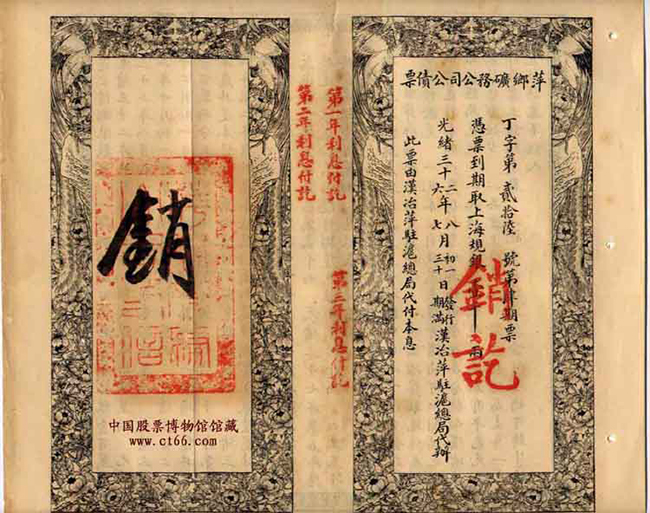 萍鄉礦務公司公債票
丁字第貳拾陸號第肆期票
憑票到期取上海規銀
兩
光緒三十二六年八七月初一三十日發行期滿漢冶萍駐滬總局代辦
此票由漢冶萍駐滬總局代付本息
銷訖
第一年利息付訖
第二年利息付訖
第三年利息付訖
銷
中国股票博物馆馆藏
www.ct66.com